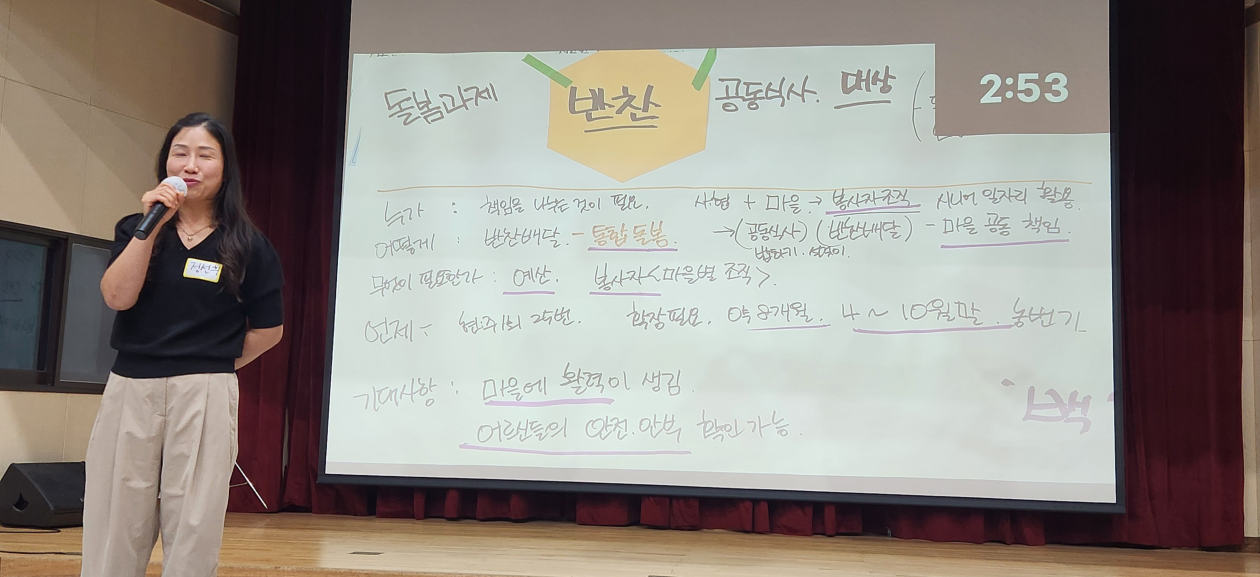 돌봄과제 반찬 공동식사. 대상
2:53
누가 : 책임을 나누는 것이 필요. 사협 + 마을 → 봉사자조직 시니어 일자리 활용.
어떻게 : 반찬배달. - 통합돌봄. → (공동식사) (반찬배달) - 마을 공동 책임.
밥하기. 설거지.
무엇이 필요한가 : 예산. 봉사자<마을별 조직>.
언제 - 현:주1회 25번. 확장필요. 약 8개월. 4 ~ 10월말. 농번기
기대사항 : 마을에 활력이 생김.
어르신들의 안전.안부 확인가능.
정선희